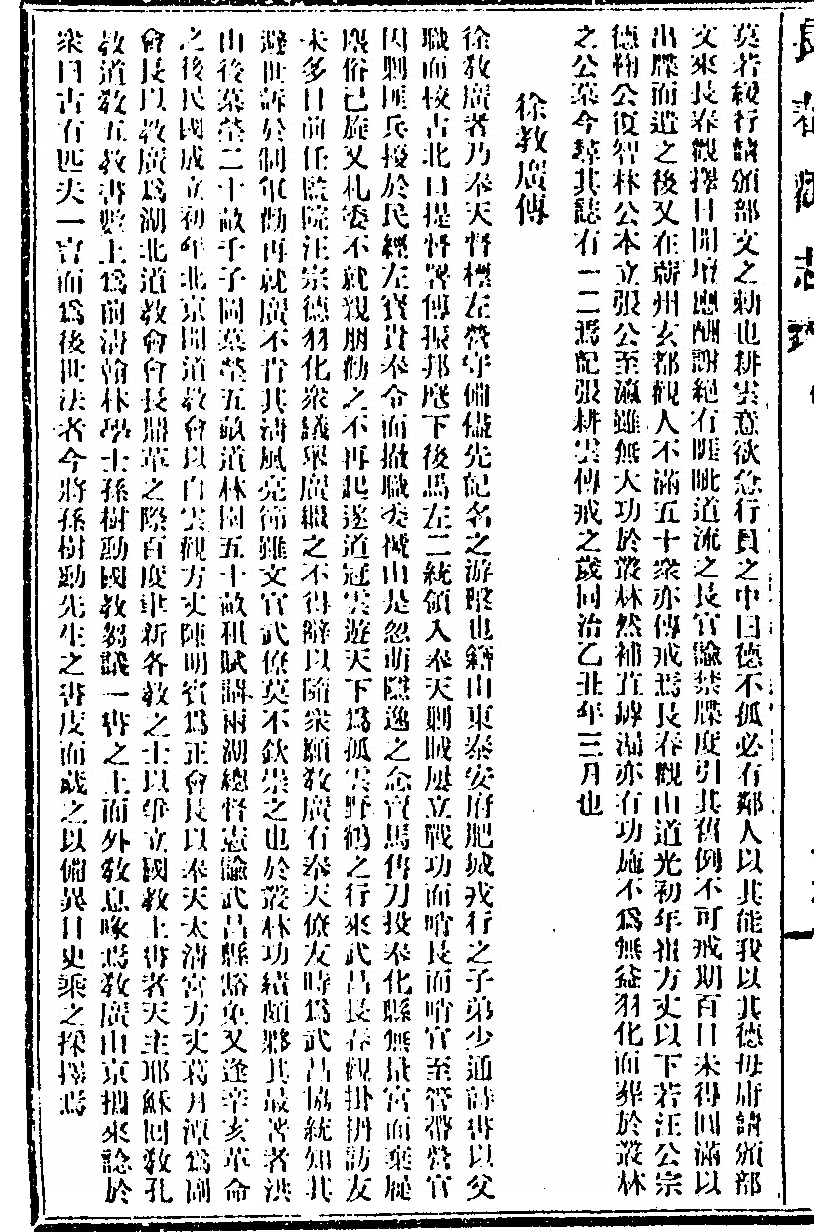 長春觀志
莫若緩行請頒部文之勅也耕雲意欲急行貫之中曰德不孤必有鄰人以其能我以其德毋庸請頒部
文來長春觀擇日開壇應酬謝絕有睚眦道流之長官諭禁牒度引其舊例不可戒期百日未得圓滿以
出牒而遣之後又在蘄州玄都觀人不滿五十衆亦傳戒焉長春觀由道光初年祖方丈以下若汪公宗
德鞠公復智林公本立張公至瀛雖無大功於叢林然補苴罅漏亦有功施不爲無益羽化而葬於叢林
之公墓今尋其誌有一二焉記張耕雲傳戒之歲同治乙丑年三月也
徐教廣傳
徐教廣者乃奉天督標左營守備儘先記名之游擊也籍山東泰安府肥城戎行之子弟少通詩書以父
職而校古北口提督署傳振邦麾下後馬左二統領入奉天剿賊屢立戰功而哨長而哨官至管帶營官
因剿匪兵擾於民經左寶貴奉令而撤職委擬由是忽萌隱逸之念賣馬售刀投奉化縣無量宮而棄屣
塵俗已旋又札委不就親朋勸之不再起遂道冠雲遊天下爲孤雲野鶴之行來武昌長春觀掛搭訪友
未多日前任監院汪宗德羽化衆議舉廣繼之不得辭以隨衆願教廣有奉天僚友時爲武昌協統知其
避世訴於制軍勸再就廣不肯其清風亮節雖文官武僚莫不欽崇之也於叢林功績頗夥其最著者洪
山後墓塋二十畝千子岡墓塋五畝道林園五十畝租賦請兩湖總督憲諭武昌縣豁免又逢辛亥革命
之後民國成立初年北京開道教會以白雲觀方丈陳明賓爲正會長以奉天太清宮方丈葛月潭爲副
會長以教廣爲湖北道教會會長鼎革之際百度維新各教之士以爭立國教上書者天主耶穌回教孔
教道教五教書數上爲前清翰林學士孫樹勳國教芻議一書之上而外教息喙焉教廣由京攜來諗於
衆曰古有匹夫一言而爲後世法者今將孫樹勳先生之書庋而藏之以備異日史乘之採擇焉